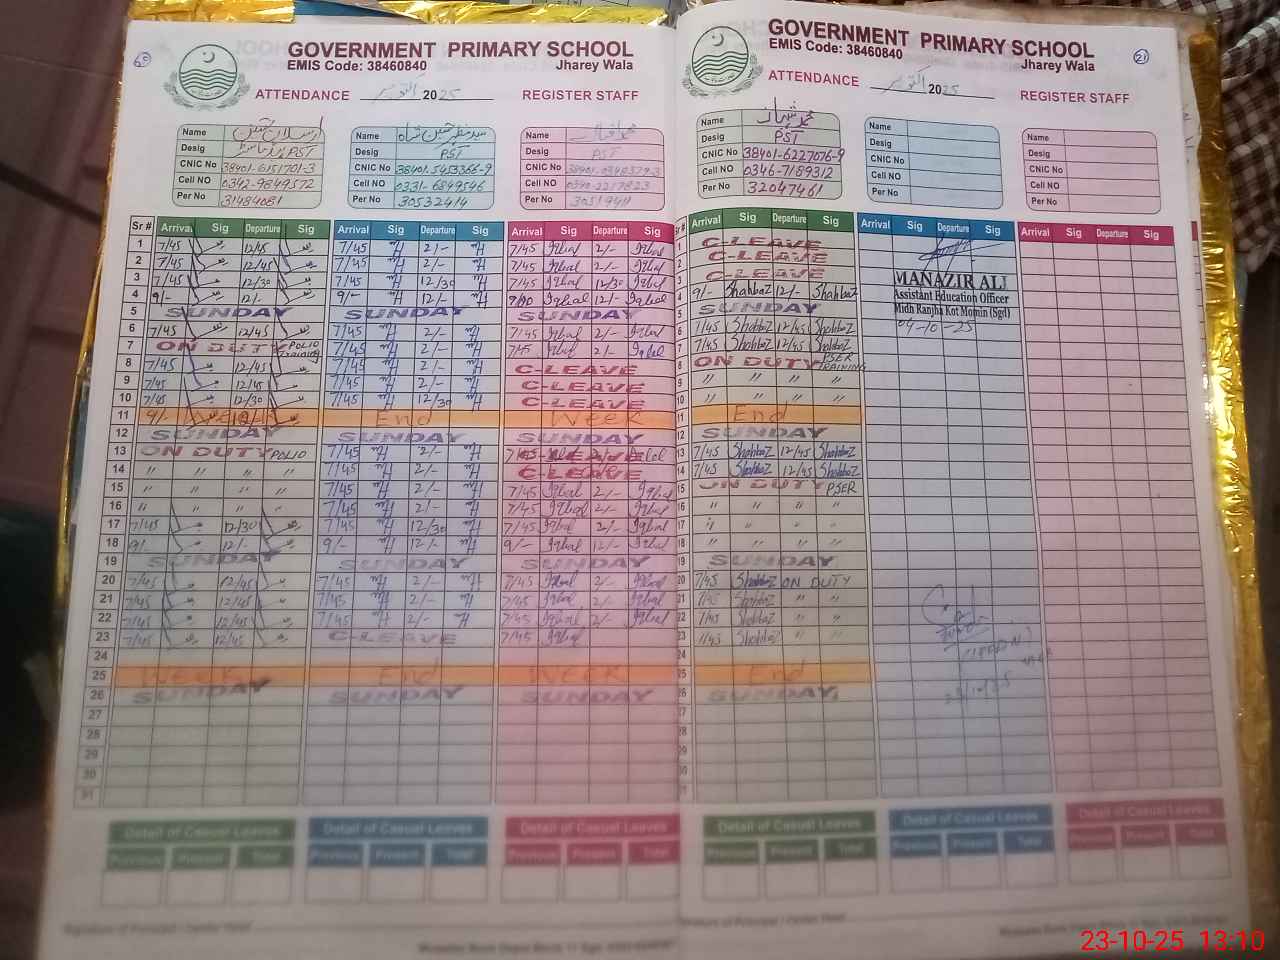 GOVERNMENT PRIMARY SCHOOL
EMIS Code: 38460840 Jharey Wala
ATTENDANCE اکتوبر 2025 REGISTER STAFF
Name ارسلان حسین
Desig PST
CNIC No 38401-6151701-3
Cell NO 0342-9849572
Per No 31484081
Name سید منظر حسین شاہ
Desig PST
CNIC No 38401-5453366-9
Cell NO 0331-6849546
Per No 30532414
Name محمد اقبال
Desig PST
CNIC No
Cell NO 0340-2217823
Per No 30519411
Sr # Arrival Sig Departure Sig Arrival Sig Departure Sig Arrival Sig Departure Sig
1 7/45 12/45 7/45 2/- 7/45 Iqbal 2/- Iqbal
2 7/45 12/45 7/45 2/- 7/45 Iqbal 2/- Iqbal
3 7/45 12/30 7/45 12/30 7/45 Iqbal 12/30 Iqbal
4 9/- 12/- 9/- 12/- Iqbal 12/- Iqbal
5 SUNDAY SUNDAY SUNDAY
6 7/45 12/45 7/45 2/- 7/45 Iqbal 2/- Iqbal
7 ON DUTY POLIO TRAINING 7/45 2/- 7/45 Iqbal 2/- Iqbal
8 7/45 12/45 7/45 2/- C-LEAVE
9 7/45 12/45 7/45 2/- C-LEAVE
10 7/45 12/30 7/45 12/30 C-LEAVE
11 9/- Week 12/- End Week
12 SUNDAY SUNDAY SUNDAY
13 ON DUTY POLIO 7/45 2/-
14 〃 〃 〃 〃 7/45 2/- C-LEAVE
15 〃 〃 〃 〃 7/45 2/- 7/45 Iqbal 2/- Iqbal
16 〃 〃 〃 〃 7/45 2/- 7/45 Iqbal 2/- Iqbal
17 7/45 12/30 7/45 12/30 7/45 Iqbal 2/- Iqbal
18 9/- 12/- 9/- 12/- 9/- Iqbal 12/- Iqbal
19 SUNDAY SUNDAY SUNDAY
20 7/45 12/45 7/45 2/- 7/45 Iqbal 2/- Iqbal
21 7/45 12/45 7/45 2/- 7/45 Iqbal 2/- Iqbal
22 7/45 12/45 7/45 2/- 7/45 Iqbal 2/- Iqbal
23 7/45 12/45 C-LEAVE 7/45 Iqbal
24
25 Week End Week
26 SUNDAY SUNDAY SUNDAY
27
28
29
30
31
Detail of Casual Leaves Detail of Casual Leaves Detail of Casual Leaves
Previous Present Total Previous Present Total Previous Present Total
21
GOVERNMENT PRIMARY SCHOOL
EMIS Code: 38460840 Jharey Wala
ATTENDANCE اکتوبر 2025 REGISTER STAFF
Name محمد شہباز
Desig PST
CNIC No 38401-6227076-9
Cell NO 0346-7189312
Per No 32047461
Name
Desig
CNIC No
Cell NO
Per No
Name
Desig
CNIC No
Cell NO
Per No
Arrival Sig Departure Sig Arrival Sig Departure Sig Arrival Sig Departure Sig
C-LEAVE
C-LEAVE
C-LEAVE
9/- Shahbaz 12/- Shahbaz
SUNDAY
7/45 Shahbaz 12/45 Shahbaz
7/45 Shahbaz 12/45 Shahbaz
ON DUTY PSER TRAINING
〃 〃 〃 〃
〃 〃 〃 〃
End
SUNDAY
7/45 Shahbaz 12/45 Shahbaz
7/45 Shahbaz 12/45 Shahbaz
ON DUTY PSER
〃 〃 〃 〃
〃 〃 〃 〃
〃 〃 〃 〃
SUNDAY
7/45 Shahbaz ON DUTY
7/45 Shahbaz 〃 〃
7/45 Shahbaz 〃 〃
7/45 Shahbaz 〃 〃
End
SUNDAY
MANAZIR ALI
Assistant Education Officer
Midh Ranjha Kot Momin (Sgd)
04-10-25
Detail of Casual Leaves Detail of Casual Leaves Detail of Casual Leaves
Previous Present Total Previous Present Total Previous Present Total
23-10-25 13:10